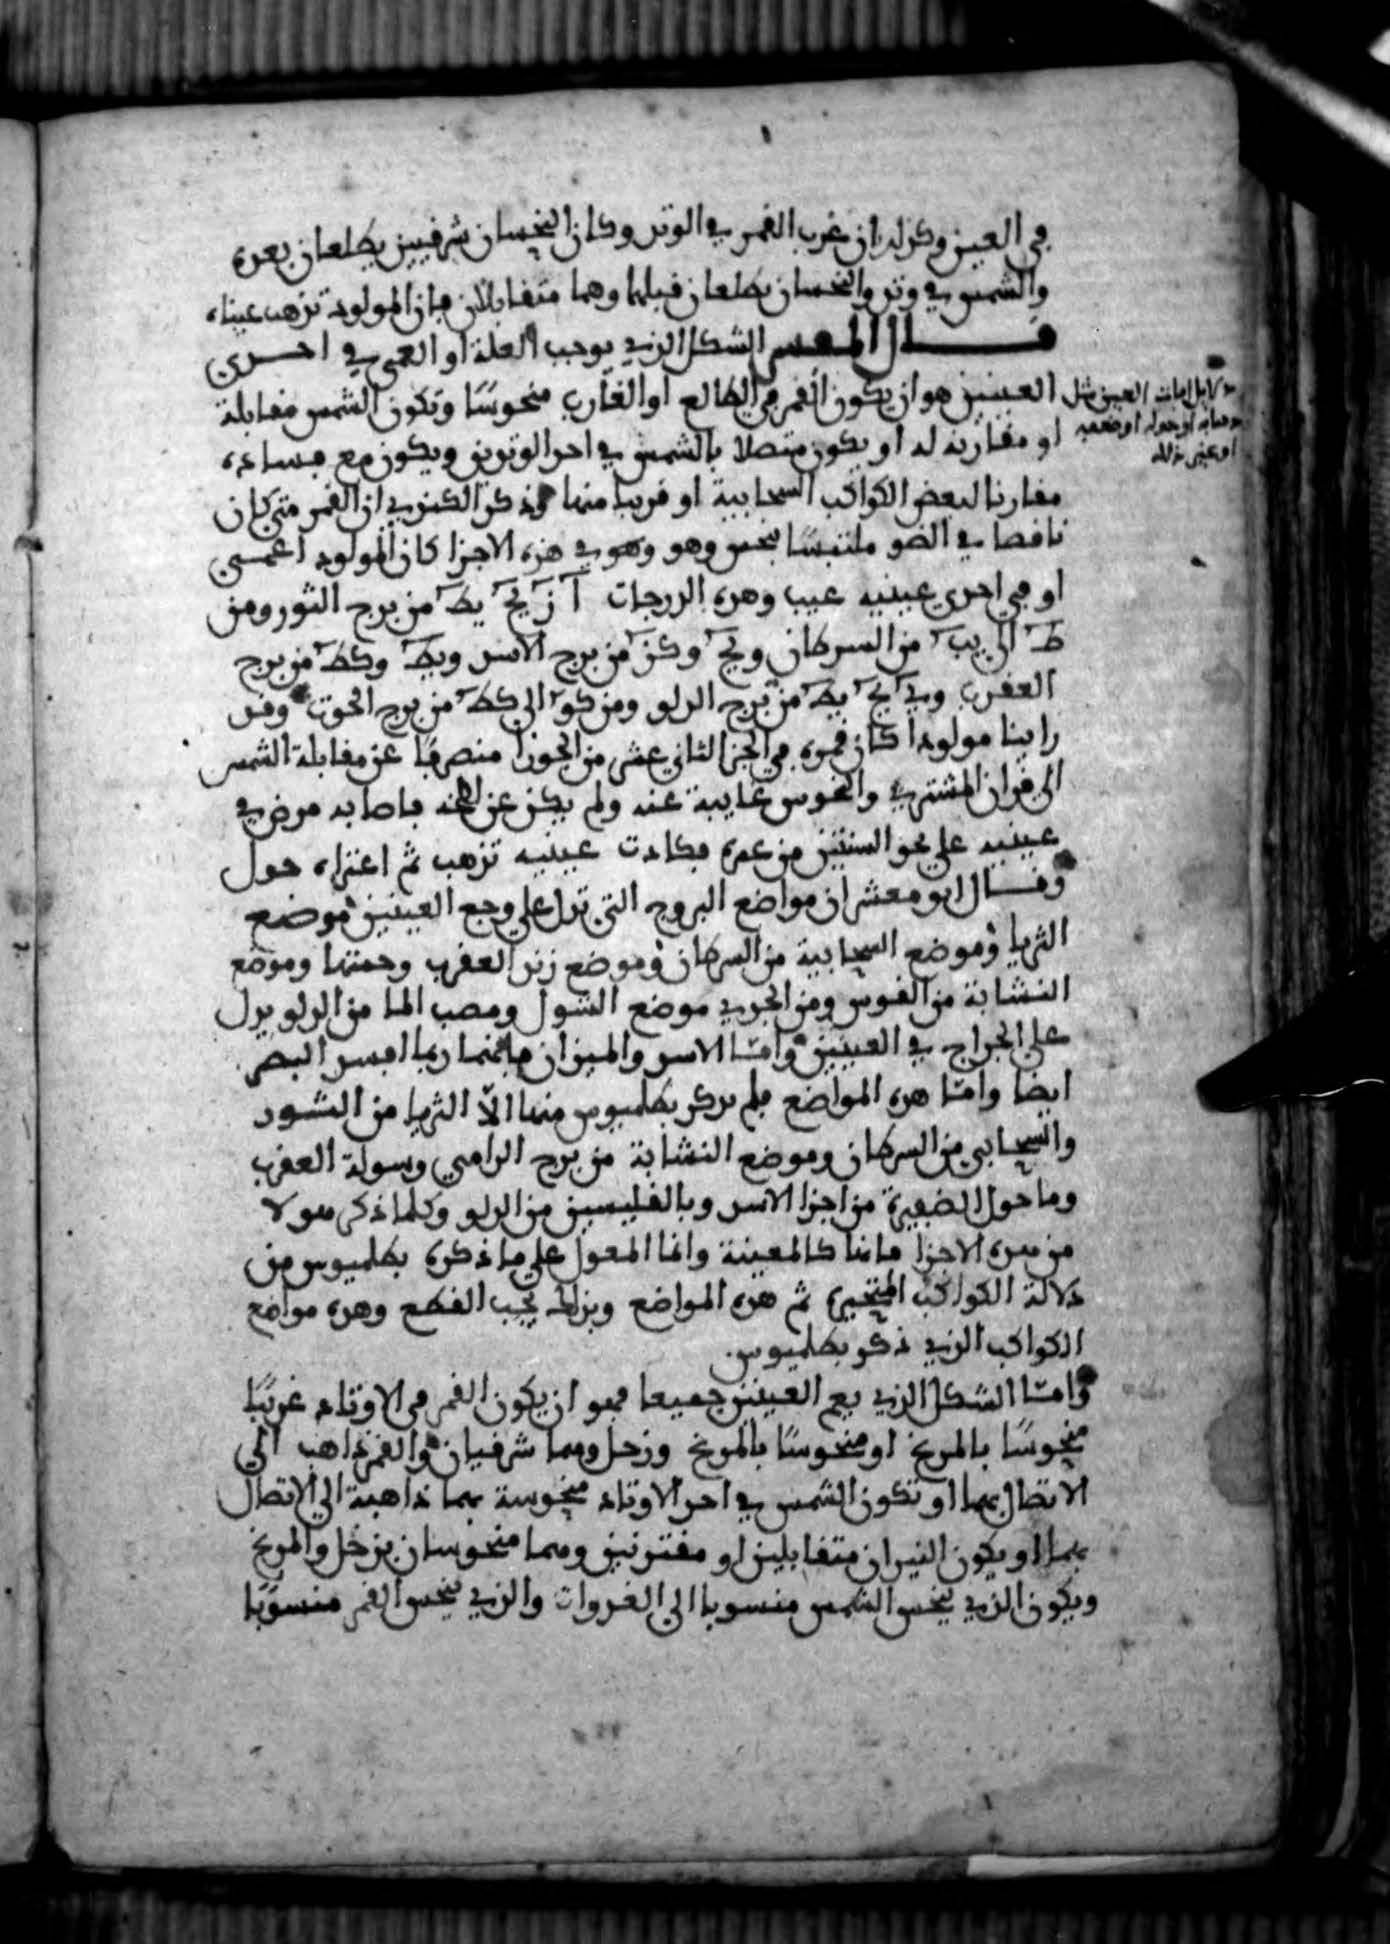 في العين وكذلك ان غرب القمر في الوتد وكان النحسان شرقيين يطلعان بعده
والشمس في وتد والنحسان يطلعان قبلها وهما متقابلان فان المولود تذهب عيناه
قال المفسر الشكل الذي يوجب العلة او العمى في احدى
العينين هو ان يكون القمر في الطالع او الغارب منحوسًا وتكون الشمس مقابلة
او مقارنة له او يكون متصلا بالشمس في احد الوتدين ويكون مع فساده
مقارنا لبعض الكواكب السحابية او قريبا منها وذكر الكندي ان القمر متى كان
ناقصا في الضو ملتبسًا بنحس وهو وهو في هذه الاجزا كان المولود اعمى
او في احدى عينيه عيب وهذه الدرجات آ ز يح يط من برج الثور ومن
ط الى يب من السرطان ويح وكز من برج الاسد ويط وكط من برج
العقرب ويح يط من برج الدلو ومن كو الى كط من برج الحوت وقد
راينا مولودا كان قمره في الجز الثاني عشر من الجوزا منصرفًا عن مقابلة الشمس
الى قران المشتري والنحوس غايبة عنه ولم يكن عن فاصابه مرض في
عينيه على نحو السنتين من عمره فكادت عينيه تذهب ثم اعتراه حول
وقال ابو معشر ان مواضع البروج التي تدل على وجع العينين موضع
الثريا وموضع السحابية من السرطان وموضع زند العقرب وحمتها وموضع
النشابة من القوس ومن الجدي موضع الشول ومصب الما من الدلو يدل
على الجراح في العينين وامّا الاسد والميزان فانهما ربما افسد البصر
ايضا وامّا هذه المواضع فلم يذكر بطلميوس منها الّا الثريا من الثور
والسحابي من السرطان وموضع النشابة من برج الرامي وسولة العقرب
وما حول الضفيرة من اجزا الاسد وبالقليسين من الدلو وكلما ذكر هولا
من هذه الاجزا فانها كالمعينة وانما المعول على ما ذكره بطلميوس من
دلالة الكواكب المتحيرة ثم هذه المواضع وبذلك يجب القطع وهذه مواضع
الكواكب الذي ذكر بطلميوس.
وامّا الشكل الذي يعم العينين جميعا فهو ان يكون القمر في الاوتاد غربيًا
منحوسًا بالمريخ او منحوسًا بالمريخ وزحل وهما شرقيان والقمر ذاهب الى
الاتصال بهما او تكون الشمس في احد الاوتاد منحوسة بهما ذاهبة الى الاتصال
بهما او يكون النيران متقابلين او مقترنين وهما منحوسان بزحل والمريخ
ويكون الذي ينحس الشمس منسوبا الى الغدوات والذي ينحس القمر منسوبًا
العين مثل
او حوله او ضعفه
او غير ذلك